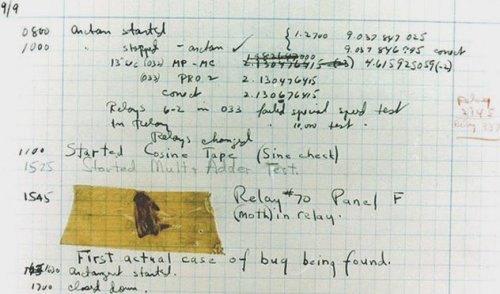 9/9
0800 Antan started { 1.2700 9.037 847 025
1000 " stopped - antan ✓ 9.037 846 995 correct
13"uc (032) MP-MC 2.130476415 (-3) 4.615925059(-2)
(033) PRO 2 2.130476415
correct 2.130676415
Relays 6-2 in 033 failed special speed test
In Relay " 10,000 test.
Relays changed
1100 Started Cosine Tape (Sine check)
1525 Started Mult+Adder Test.
1545 Relay #70 Panel F
(Moth) in relay.
First actual case of bug being found.
1630 antangent started.
1700 closed down.
Relay